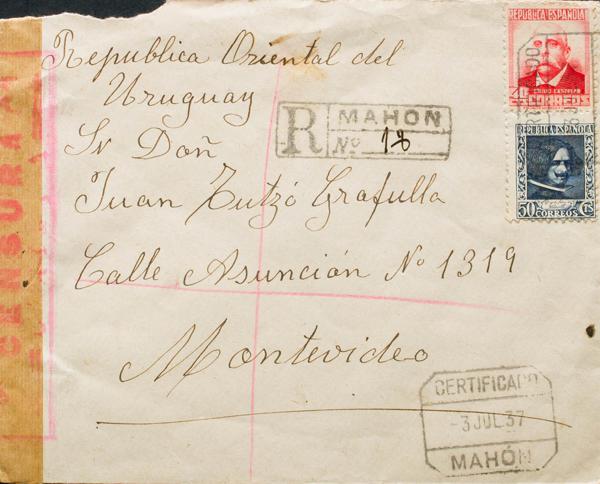 Republica Oriental del
Uruguay
Sr Doñ
Juan Tutzó Grafulla
Calle Asunción Nº 1319
Montevideo
R MAHON
Nº 18
REPÚBLICA ESPAÑOLA
EMILIO CASTELAR
CORREOS
REPUBLICA ESPAÑOLA
50 CORREOS CTS
CERTIFICADO
-3 JUL 37
MAHÓN
CENSURA